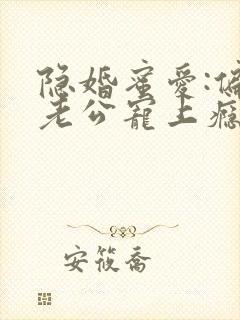 隐婚蜜爱:偏
老公宠上瘾
安筱喬